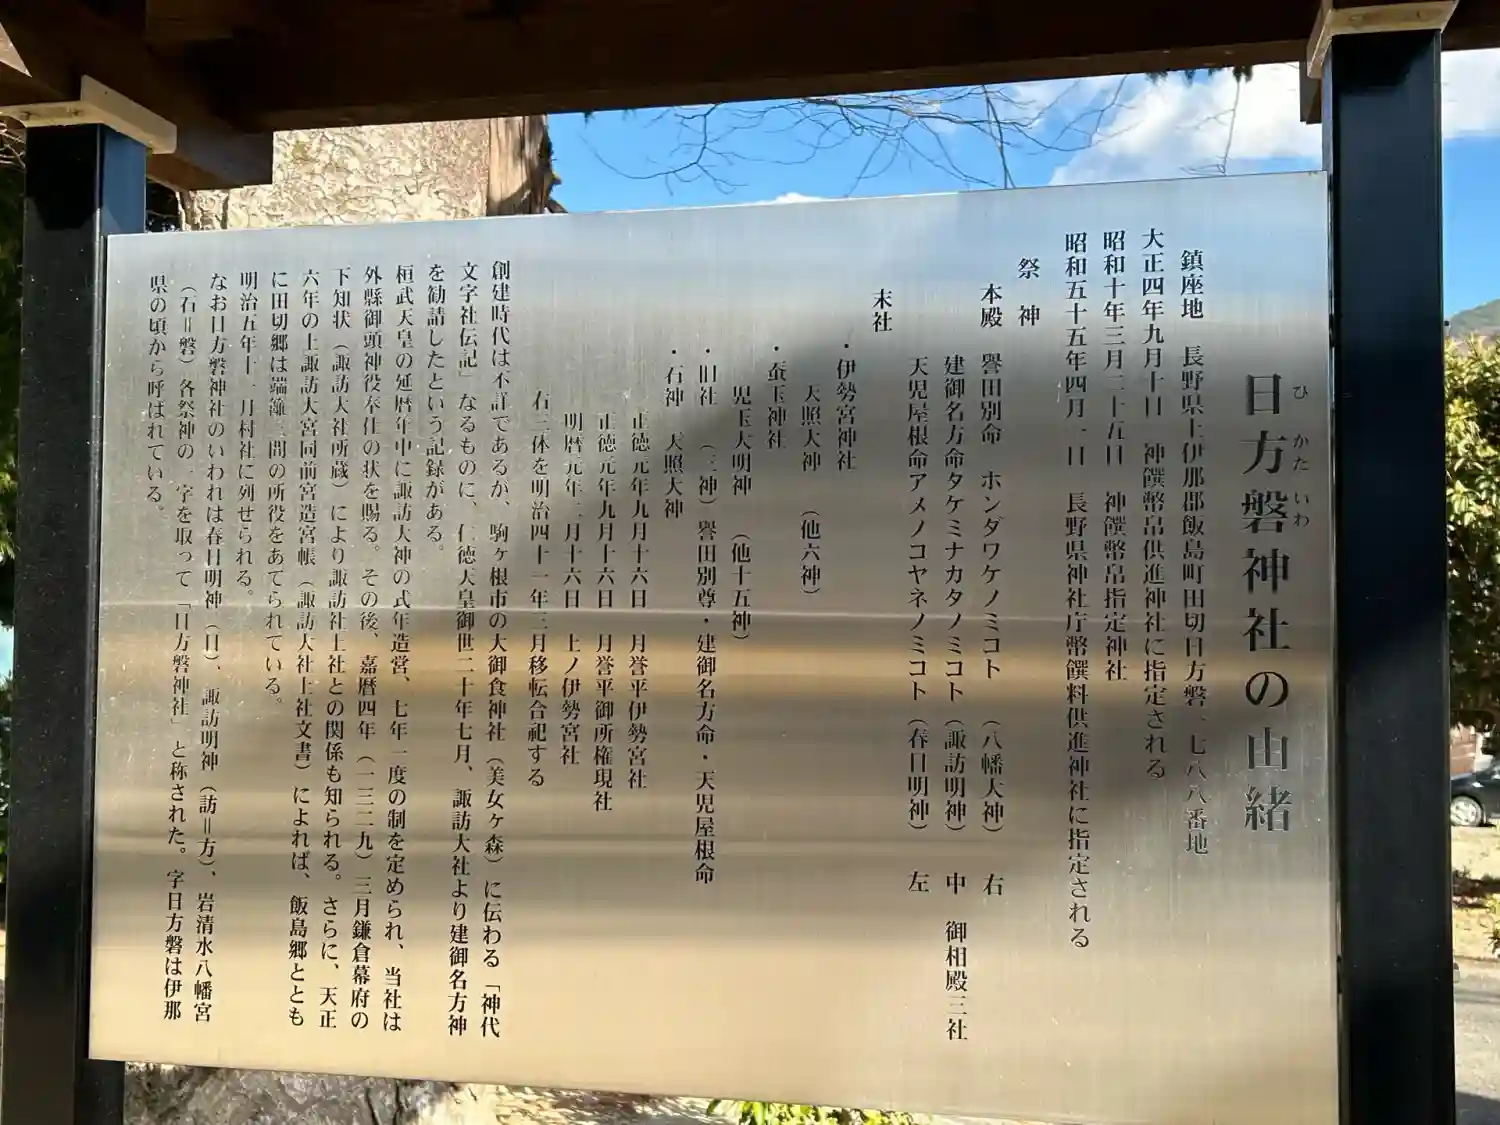 日方磐神社の由緒
ひ かた いわ
鎮座地 長野県上伊那郡飯島町田切日方磐一、七八八番地
大正四年九月十日 神饌幣帛供進神社に指定される
昭和十年三月二十五日 神饌幣帛指定神社
昭和五十五年四月一日 長野県神社庁幣饌料供進神社に指定される
祭神
本殿 譽田別命 ホンダワケノミコト (八幡大神) 右
建御名方命タケミナカタノミコト(諏訪明神) 中 御相殿三社
天児屋根命アメノコヤネノミコト(春日明神) 左
末社
・伊勢宮神社
天照大神 (他六神)
・蚕玉神社
児玉大明神 (他十五神)
・旧社 (三神)譽田別尊・建御名方命・天児屋根命
・石神 天照大神
正徳元年九月十六日 月誉平伊勢宮社
正徳元年九月十六日 月誉平御所権現社
明暦元年二月十六日 上ノ伊勢宮社
右三体を明治四十一年三月移転合祀する
創建時代は不詳であるが、駒ヶ根市の大御食神社(美女ヶ森)に伝わる「神代
文字社伝記」なるものに、仁徳天皇御世二十年七月、諏訪大社より建御名方神
を勧請したという記録がある。
桓武天皇の延暦年中に諏訪大神の式年造営、七年一度の制を定められ、当社は
外縣御頭神役奉仕の状を賜る。その後、嘉暦四年(一三二九)三月鎌倉幕府の
下知状(諏訪大社所蔵)により諏訪社上社との関係も知られる。さらに、天正
六年の上諏訪大宮同前宮造宮帳(諏訪大社上社文書)によれば、飯島郷ととも
に田切郷は端籬三間の所役をあてられている。
明治五年十一月村社に列せられる。
なお日方磐神社のいわれは春日明神(日)、諏訪明神(訪=方)、岩清水八幡宮
(石=磐)各祭神の一字を取って「日方磐神社」と称された。字日方磐は伊那
県の頃から呼ばれている。